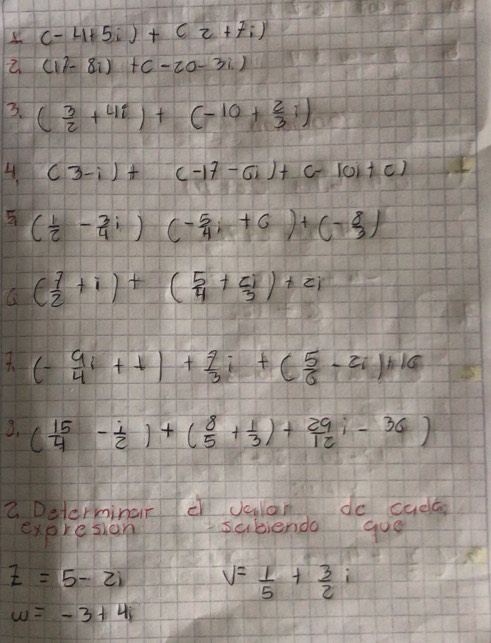 1. (-4+5i) + (2+7i)
2. (17-8i) + (-20-3i)
3. (3/2 + 4i) + (-10 + 2/3 i)
4. (3-i) + (-17-6i) + (-10i+6)
5. (1/2 - 3/4 i) (-5/4 i + 6) + (-8/3)
6. (7/2 + i) + (5/4 + 5i/3) + 2i
7. (-9/4 i + 1) + 7/3 i + (5/6 - 2i) + 16
8. (15/4 - i/2) + (8/5 + 1/3) + 29/12 i - 36)
2. Determinar el valor de cada
expresion sabiendo que
z = 5-2i V= 1/5 + 3/2 i
w = -3+4i